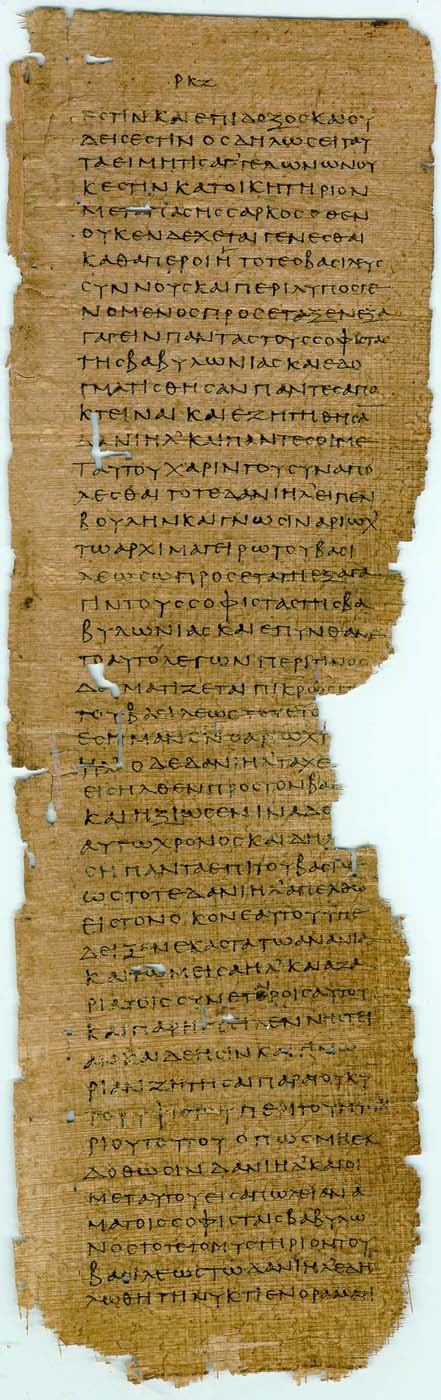 ΡΚΖ
ΕϹΤΙΝ ΚΑΙ ΕΠΙΔΟΞΟϹ ΚΑΙ ΟΥ
ΔΕΙϹ ΕϹΤΙΝ ΟϹ ΔΗΛΩϹΕΙ ΤΑΥ
ΤΑ ΕΙ ΜΗ ΤΙϹ ΑΓΓΕΛΩΝ ΩΝ ΟΥ
Κ ΕϹΤΙΝ ΚΑΤΟΙΚΗΤΗΡΙΟΝ
ΜΕΤΑ ΠΑϹΗϹ ϹΑΡΚΟϹ ΟΘΕΝ
ΟΥΚ ΕΝΔΕΧΕΤΑΙ ΓΕΝΕϹΘΑΙ
ΚΑΘΑΠΕΡ ΟΙΗ ΤΟΤΕ Ο ΒΑϹΙΛΕΥϹ
ϹΥΝΝΟΥϹ ΚΑΙ ΠΕΡΙΛΥΠΟϹ ΓΕ
ΝΟΜΕΝΟϹ ΠΡΟϹΕΤΑΞΕΝ ΕΞΑ
ΓΑΓΕΙΝ ΠΑΝΤΑϹ ΤΟΥϹ ϹΟΦΙϹΤΑϹ
ΤΗϹ ΒΑΒΥΛΩΝΙΑϹ ΚΑΙ ΕΔΟ
ΓΜΑΤΙϹΘΗϹΑΝ ΠΑΝΤΕϹ ΑΠΟ
ΚΤΕΙΝΑΙ ΚΑΙ ΕΖΗΤΗΘΗ ϹΑ
ΔΑΝΙΗΛ ΚΑΙ ΠΑΝΤΕϹ ΟΙ ΜΕ
Τ ΑΥΤΟΥ ΧΑΡΙΝ ΤΟΥ ϹΥΝΑΠΟ
ΛΕϹΘΑΙ ΤΟΤΕ ΔΑΝΙΗΛ ΕΙΠΕΝ
ΒΟΥΛΗΝ ΚΑΙ ΓΝΩϹΙΝ ΑΡΙΩΧ
ΤΩ ΑΡΧΙΜΑΓΕΙΡΩ ΤΟΥ ΒΑϹΙ
ΛΕΩϹ Ω ΠΡΟϹΕΤΑΓΗ ΕΞΑΓΑ
ΓΙΝ ΤΟΥϹ ϹΟΦΙϹΤΑϹ ΤΗϹ ΒΑ
ΒΥΛΩΝΙΑϹ ΚΑΙ ΕΠΥΝΘΑΝΕ
ΤΟ ΑΥΤΟ ΛΕΓΩΝ ΠΕΡΙ ΤΙΝΟϹ
ΔΟΓΜΑΤΙΖΕΤΑΙ ΠΙΚΡΩϹ Π
ΤΟΥ ΒΑϹΙΛΕΩϹ ΤΟΤΕ ΤΟ
ΕϹΗΜΑΝΕΝ Ο ΑΡΙΩΧ Τ
ΗΛ Ο ΔΕ ΔΑΝΙΗΛ ΤΑΧΕ
ΕΙϹΗΛΘΕΝ ΠΡΟϹ ΤΟΝ ΒΑ
ΚΑΙ ΗΞΙΩϹΕΝ ΙΝΑ ΔΟ
ΑΥΤΩ ΧΡΟΝΟϹ ΚΑΙ ΔΗΛ
ϹΗ ΠΑΝΤΑ ΕΠΙ ΤΟΥ ΒΑϹΙΛΕ
ΩϹ ΤΟΤΕ ΔΑΝΙΗΛ ΑΠΕΛΘΩ
ΕΙϹ ΤΟΝ ΟΙΚΟΝ ΕΑΥΤΟΥ ΥΠΕ
ΔΕΙΞΕΝ ΕΚΑϹΤΑ ΤΩ ΑΝΑΝΙΑ
ΚΑΙ ΤΩ ΜΕΙϹΑΗΛ ΚΑΙ ΑΖΑ
ΡΙΑ ΤΟΙϹ ϹΥΝΕΤΑΙΡΟΙϹ ΑΥΤΟΥ
ΚΑΙ ΠΑΡΗΓΓΕΙΛΕΝ ΝΗϹΤΕΙ
ΑΝ ΚΑΙ ΔΕΗϹΙΝ ΚΑΙ ΤΙΜΩ
ΡΙΑΝ ΖΗΤΗϹΑΙ ΠΑΡΑ ΤΟΥ ΚΥ
ΤΟΥ ΥΨΙϹΤΟΥ ΠΕΡΙ ΤΟΥ ΜΥϹΤΗ
ΡΙΟΥ ΤΟΥΤΟΥ ΟΠΩϹ ΜΗ ΕΚ
ΔΟΘΩϹΙΝ ΔΑΝΙΗΛ ΚΑΙ ΟΙ
ΜΕΤ ΑΥΤΟΥ ΕΙϹ ΑΠΩΛΕΙΑΝ Α
ΜΑ ΤΟΙϹ ϹΟΦΙϹΤΑΙϹ ΒΑΒΥΛΩ
ΝΟϹ ΤΟΤΕ ΤΟ ΜΥϹΤΗΡΙΟΝ ΤΟΥ
ΒΑϹΙΛΕΩϹ ΤΩ ΔΑΝΙΗΛ ΕΔΗ
ΛΩΘΗ ΤΗ ΝΥΚΤΙ ΕΝ ΟΡΑΜΑΤΙ